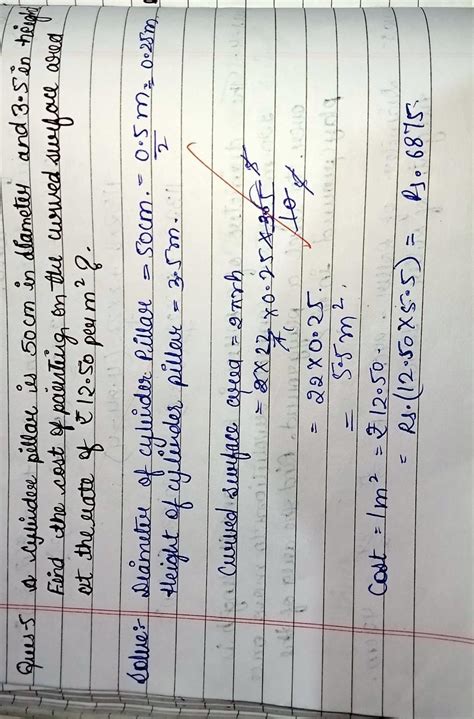 Ques-5 A cylinder pillar is 50cm in diameter and 3.5 in height
Find the cost of painting on the curved surface area
at the rate of ₹12.50 per m² ?.
Solve:- Diameter of cylinder Pillar = 50cm. = 0.5m/2 = 0.25m
Height of cylinder pillar = 3.5m.
Curved surface area = 2πrh
= 2 × 22/7 × 0.25 × 35/10
= 22 × 0.25.
= 5.5 m².
Cost = 1m² = ₹12.50.
= Rs. (12.50 × 5.5) = Rs. 6875.